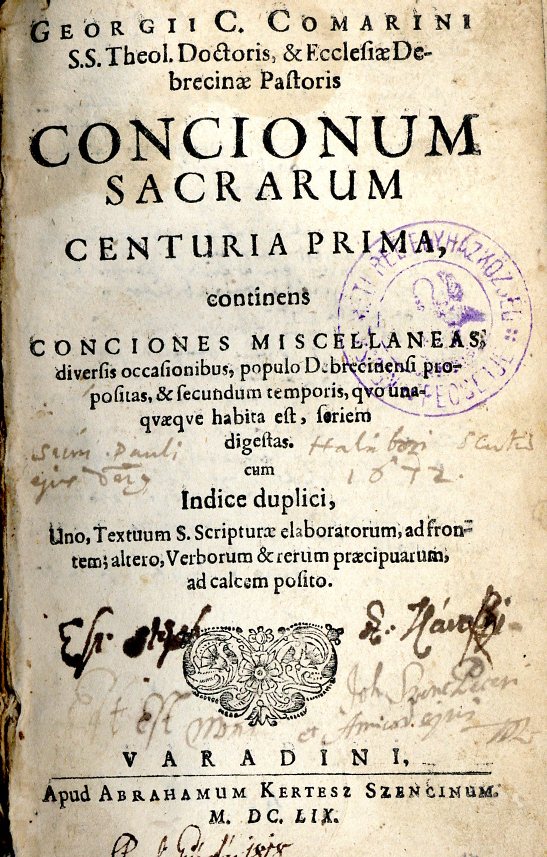 GEORGII C. COMARINI
S.S. Theol. Doctoris, & Ecclesiæ De-
brecinæ Pastoris
CONCIONUM
SACRARUM
CENTURIA PRIMA,
continens
CONCIONES MISCELLANEAS,
diversis occasionibus, populo Debrecinensi pro-
positas, & secundum temporis, qvo una-
qvæqve habita est, seriem
digestas.
cum
Indice duplici,
Uno, Textuum S. Scripturæ elaboratorum, ad fron-
tem; altero, Verborum & rerum præcipuarum,
ad calcem posito.
Est
et Amicor
VARADINI,
Apud ABRAHAMUM KERTESZ SZENCINUM.
M. DC. LIX.